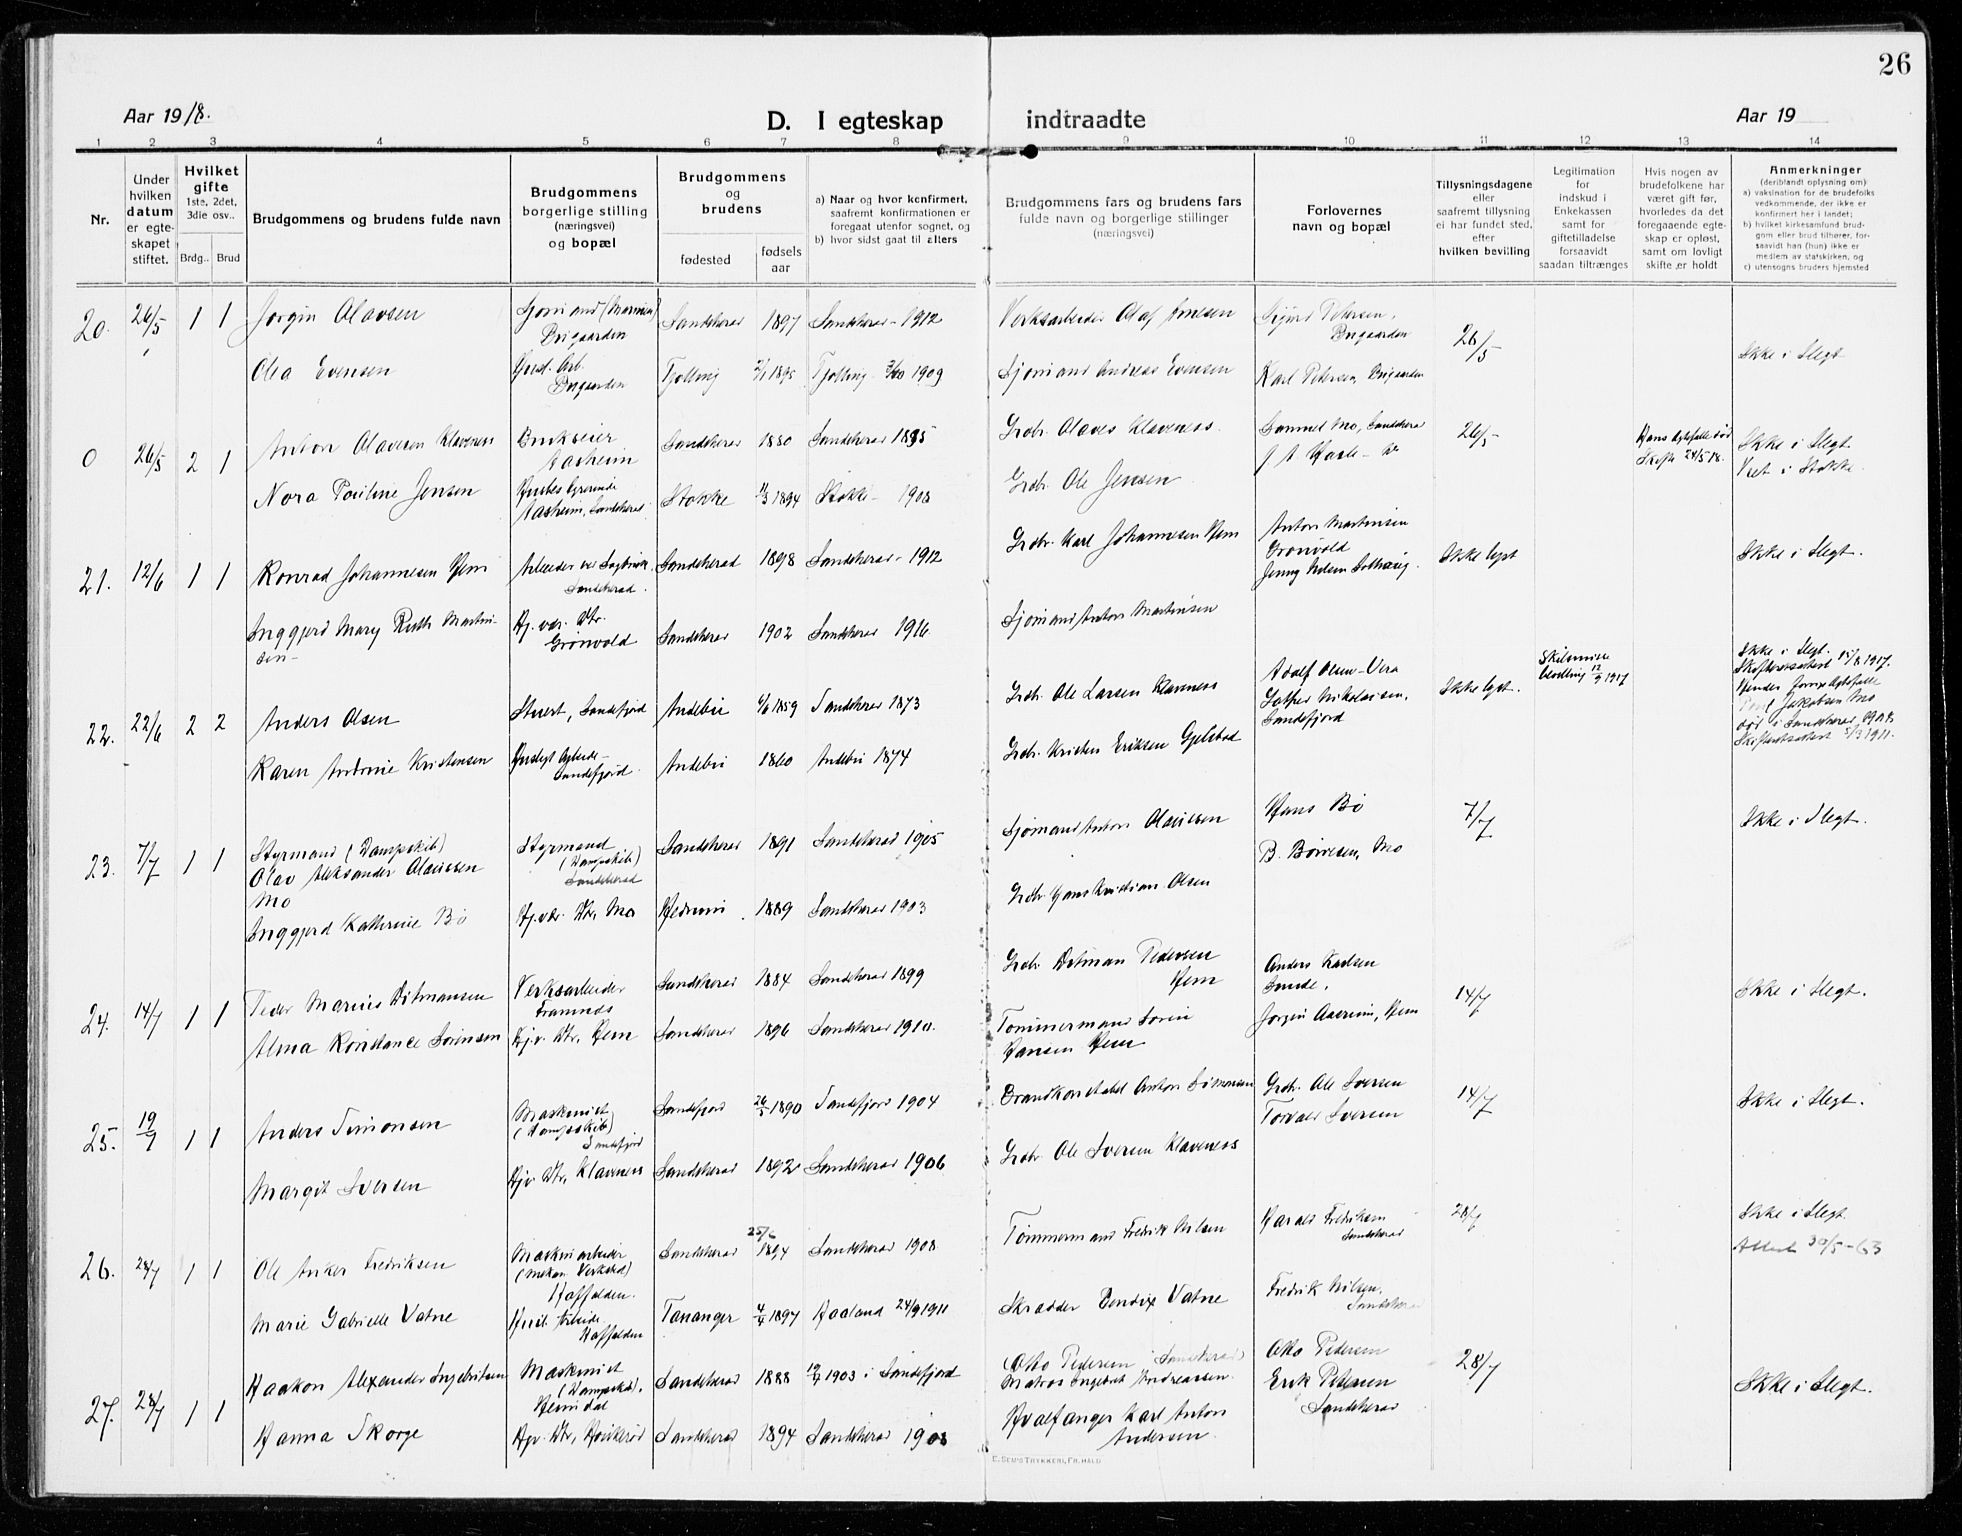 26
Aar 1918.
D. I egteskap indtraadte
Aar 19
1 2 3 4 5 6 7 8 9 10 11 12 13 14
Nr.
Under hvilken datum er egteskapet stiftet.
Hvilket gifte
1ste, 2det, 3die osv..
Brdg.. Brud
Brudgommens og brudens fulde navn
Brudgommens borgerlige stilling (næringsvei) og bopæl
Brudgommens og brudens
fødested
fødsels aar
a) Naar og hvor konfirmert, saafremt konfirmationen er foregaat utenfor sognet, og
b) hvor sidst gaat til alters
Brudgommens fars og brudens fars fulde navn og borgerlige stillinger (næringsvei)
Forlovernes navn og bopæl
Tillysningsdagene eller saafremt tillysning ei har fundet sted, efter hvilken bevilling
Legitimation for indskud i Enkekassen samt for giftetilladelse forsaavidt saadan tiltrænges
Hvis nogen av brudefolkene har været gift før, hvorledes da det foregaaende egteskap er opløst, samt om lovligt skifte er holdt
Anmerkninger
(deriblandt oplysning om)
a) vaksination for de brudefolks vedkommende, der ikke er konfirmert her i landet;
b) hvilket kirkesamfund brudgom eller brud tilhører, forsaavidt han (hun) ikke er medlem av statskirken, og
c) utensogns bruders hjemsted
20. 26/5 1 1 Jørgin Olavsen Sandeherad 1897 Sandeherad - 1912 Verksarbeider Olaf Sigurd Petersen, 26/5 Ikke i Slegt
Olea Evensen Tjølling 1895 Tjølling 1909 Sjømand Andreas Evensen Karl Petersen,
0 26/5 2 1 Anton Olavesen Klaveness Aasheim Sandeherad 1880 Sandeherad 1895 Grdbr. Olaves Klaveness. Samuel Mo, Sandeherad 26/5 Skifte 24/5 18. Ikke i Slegt.
Viet i Stokke.
Nora Pauline Jensen Aasheim, Sandeherad Stokke 11/3 1894 Stokke - 1908 Grdbr. Ole Jensen
21. 12/6 1 1 Konrad Johannesen Hem Sandeherad. Sandeherad 1898 Sandeherad - 1912 Grdbr. Karl Johannesen Hem Anton Martinsen Grønvold Ikke lyst Ikke i Slegt.
Inggjerd Mary Ruth Martinsen Hj. vær. Dtr. Grønvold Sandeherad 1902 Sandeherad 1916 Sjømand Anton Martinsen
22. 22/6 2 2 Anders Olsen Sandefjord Andebu 1859 Sandeherad 1873 Grdbr. Ole Larsen Klaveness Adolf Olsen - Vera Ikke lyst. Skilsmisse bevilling 12/9 1917 Ikke i Slegt.
Sandefjord
Karen Andrine Kristensen Sandefjord Andebu 1860 Andebu 1874 Grdbr. Kristen Eriksen Gjelstad
23. 7/7 1 1 Styrmand (Dampskib)
Olav Aleksander Olaussen Mo
Styrmand (Dampskib) Sandeherad Sandeherad 1891 Sandeherad 1905 Sjømand Anton Olaussen Hans Bø 7/7 Ikke i Slegt.
Inggjerd Kathrine Bø Hj. vær. Dtr, Mo Hedrum 1889 Sandeherad 1903 Grdbr. Hans Kristian Olsen B. Børresen, Mo
24. 14/7 1 1 Peder Marius Ditmansen Verksarbeider Framnæs Sandeherad 1884 Sandeherad 1899 Grdbr. Ditman Pedersen Hem Anders Karlsen Sunde, 14/7 Ikke i Slegt.
Alma Konstance Sørensen Hj. v. Dtr, Hem Sandeherad 1896 Sandeherad 1910. Tømmermand Søren Hansen Hem
25. 19/7 1 1 Anders Simonsen Maskinist (Dampskib) Sandefjord Sandefjord 26/5 1890 Sandefjord 1904 Brandkonstabel Anton Simonsen Grdbr. Ole Iversen 14/7 Ikke i Slegt.
Margit Iversen Hjv. Dtr, Klavenes Sandeherad 1892 Sandeherad 1906 Grdbr. Ole Iversen Klaveness Torvald Iversen
26. 28/7 1 1 Ole Anker Fredriksen Maskinarbeider (Mekan. Verksted) Sandeherad 25/6 1894 Sandeherad 1908 Tømmermand Fredrik Nilsen Harald Fredriksen Sandeherad 28/7 Ikke i Slegt
Attest 30/5-63
Marie Gabrielle Vatne Tananger 4/4 1897 Haaland 24/9 1911 Skrædder Bendix Vatne Fredrik Nilsen, Sandeherad
27. 28/7 1 1 Haakon Alexander Ingebritsen Maskinist (Dampskib). Sandeherad 1888 1903 i Sandefjord (Otto Pedersen Sandeherad)
Matros Ingebret Andreassen. Otto Pedersen 28/7 Ikke i Slegt.
Hanna Skorge Hjv. Dtr, Sandeherad 1894 Sandeherad 1908 Hvalfanger Karl Anton Andersen. Erik Petersen Sandeherad
E. SEM'S TRYKKERI, FR.HALD